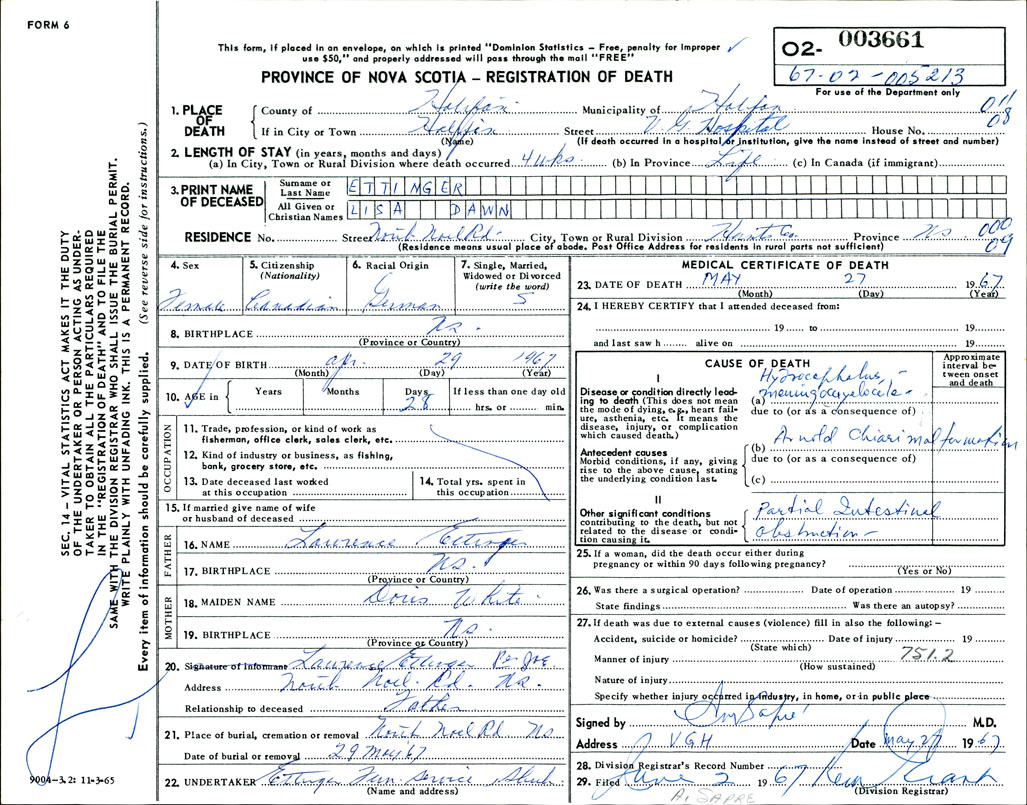 FORM 6
This form, if placed in an envelope, on which is printed "Dominion Statistics – Free, penalty for improper
use $50," and properly addressed will pass through the mail "FREE"
O2- 003661
67-02-005213
For use of the Department only
PROVINCE OF NOVA SCOTIA – REGISTRATION OF DEATH
1. PLACE OF DEATH
County of Halifax Municipality of Halifax 011
If in City or Town Halifax Street V. G. Hospital House No. 08
(Name) (If death occurred in a hospital or institution, give the name instead of street and number)
2. LENGTH OF STAY (in years, months and days)
(a) In City, Town or Rural Division where death occurred 4 wks. (b) In Province Life (c) In Canada (if immigrant)
3. PRINT NAME OF DECEASED
Surname or Last Name ETTINGER
All Given or Christian Names LISA DAWN
RESIDENCE No. Street North Noel Rd. City, Town or Rural Division Hants Co. Province Ns. 000
09
(Residence means usual place of abode. Post Office Address for residents in rural parts not sufficient)
4. Sex
Female
5. Citizenship
(Nationality)
Canadian
6. Racial Origin
German
7. Single, Married,
Widowed or Divorced
(write the word)
S
8. BIRTHPLACE Ns.
(Province or Country)
9. DATE OF BIRTH apr. 29 1967
(Month) (Day) (Year)
10. AGE in Years Months Days If less than one day old
28 hrs. or min.
OCCUPATION
11. Trade, profession, or kind of work as
fisherman, office clerk, sales clerk, etc.
12. Kind of industry or business, as fishing,
bank, grocery store, etc.
13. Date deceased last worked
at this occupation
14. Total yrs. spent in
this occupation
15. If married give name of wife
or husband of deceased
FATHER
16. NAME Lawrence Ettinger
17. BIRTHPLACE Ns.
(Province or Country)
MOTHER
18. MAIDEN NAME Doris White
19. BIRTHPLACE Ns.
(Province or Country)
20. Signature of informant Lawrence Ettinger Per
Address North Noel Rd. Ns.
Relationship to deceased Father
21. Place of burial, cremation or removal North Noel Rd Ns
Date of burial or removal 29 May '67
22. UNDERTAKER Ettinger Fun. Service
(Name and address)
MEDICAL CERTIFICATE OF DEATH
23. DATE OF DEATH MAY 27 1967
(Month) (Day) (Year)
24. I HEREBY CERTIFY that I attended deceased from:
19 to 19
and last saw h alive on 19
CAUSE OF DEATH
Approximate
interval be-
tween onset
and death
I
Disease or condition directly lead-
ing to death (This does not mean
the mode of dying, e.g., heart fail-
ure, asthenia, etc. It means the
disease, injury, or complication
which caused death.)
Hydrocephalus, -
(a) meningomyelocele -
due to (or as a consequence of)
Antecedent causes
Morbid conditions, if any, giving
rise to the above cause, stating
the underlying condition last.
(b) Arnold Chiari malformation
due to (or as a consequence of)
(c)
II
Other significant conditions
contributing to the death, but not
related to the disease or condi-
tion causing it.
Partial Intestinal
obstruction -
25. If a woman, did the death occur either during
pregnancy or within 90 days following pregnancy?
(Yes or No)
26. Was there a surgical operation? Date of operation 19
State findings Was there an autopsy?
27. If death was due to external causes (violence) fill in also the following: –
Accident, suicide or homicide? Date of injury 19
(State which) 751.2
Manner of injury
(How sustained)
Nature of injury
Specify whether injury occurred in industry, in home, or in public place
Signed by M.D.
Address VGH Date May 27 1967
28. Division Registrar's Record Number
29. Filed June 2 1967
(Division Registrar)
A. SAPRE
SEC. 14 – VITAL STATISTICS ACT MAKES IT THE DUTY
OF THE UNDERTAKER OR PERSON ACTING AS UNDER-
TAKER TO OBTAIN ALL THE PARTICULARS REQUIRED
IN THE "REGISTRATION OF DEATH" AND TO FILE THE
SAME WITH THE DIVISION REGISTRAR WHO SHALL ISSUE THE BURIAL PERMIT.
WRITE PLAINLY WITH UNFADING INK. THIS IS A PERMANENT RECORD.
Every item of information should be carefully supplied. (See reverse side for instructions.)
9004-3.2: 11-3-65